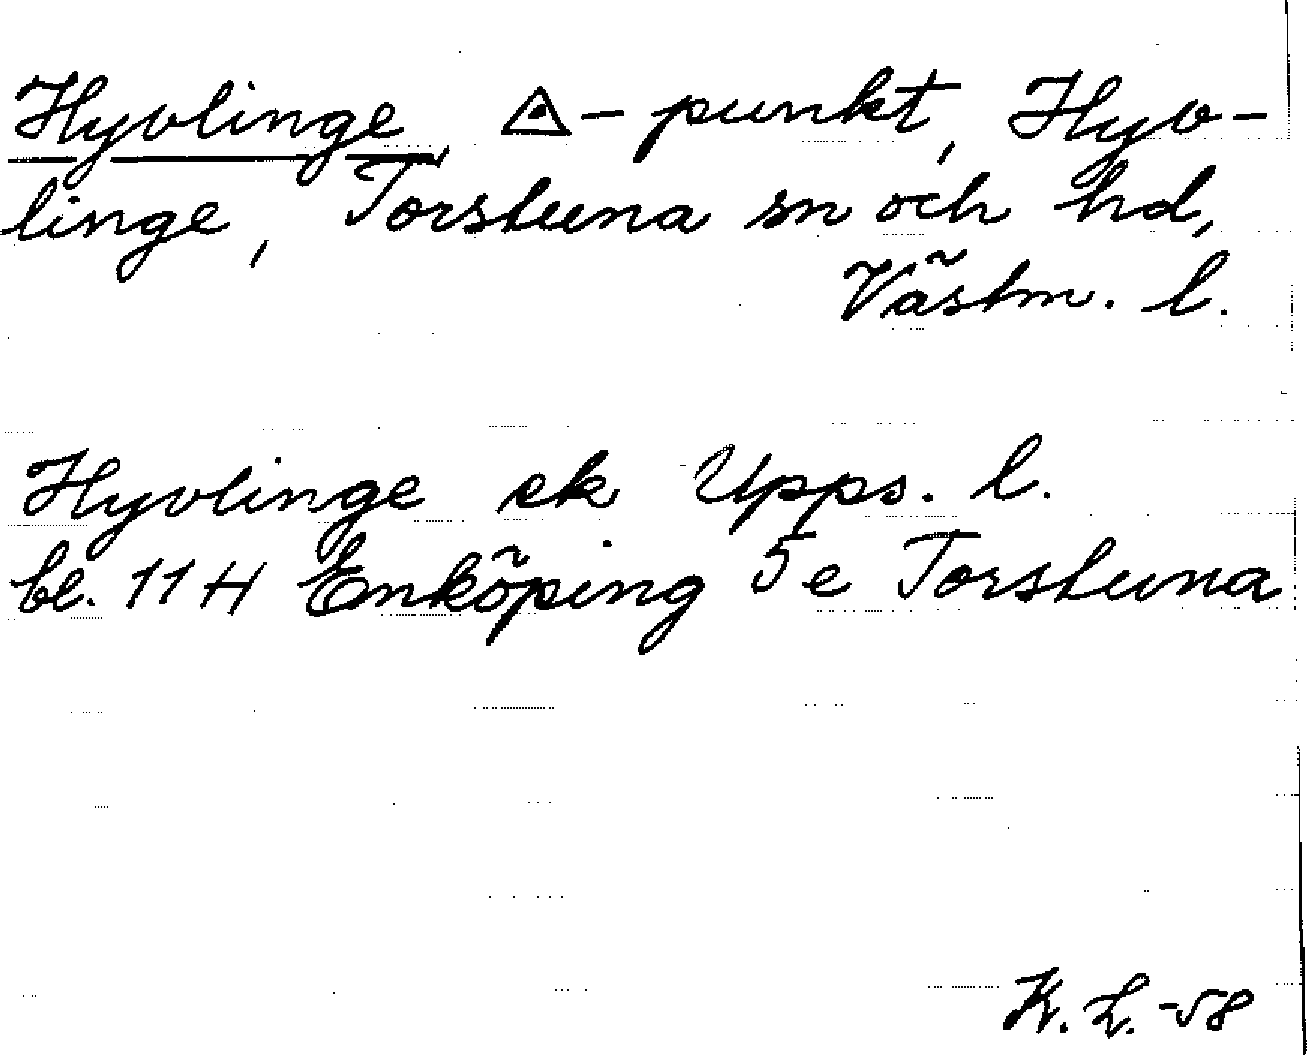 Hyvlinge, △-punkt, Hyv-
linge, Torstuna sn och hd,
Västm. l.
Hyvlinge ek Upps. l.
bl. 11 H Enköping 5 e Torstuna
K. L. -58